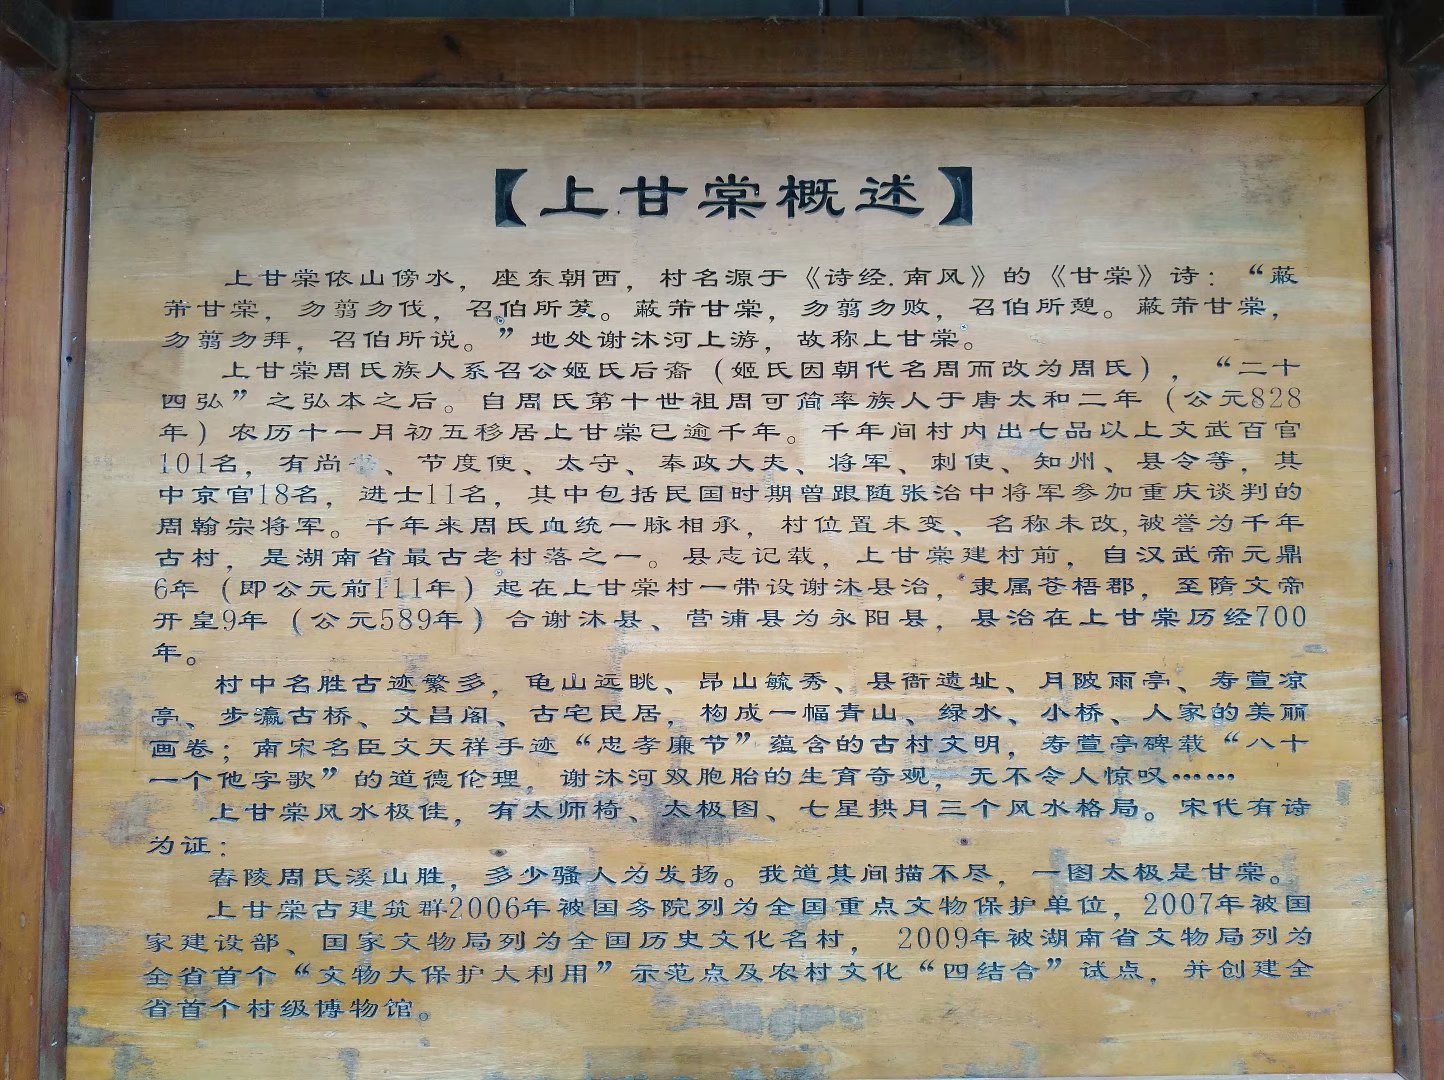 【上甘棠概述】
上甘棠依山傍水，座东朝西，村名源于《诗经.南风》的《甘棠》诗：“蔽
芾甘棠，勿翦勿伐，召伯所茇。蔽芾甘棠，勿翦勿败，召伯所憩。蔽芾甘棠，
勿翦勿拜，召伯所说。”地处谢沐河上游，故称上甘棠。
上甘棠周氏族人系召公姬氏后裔（姬氏因朝代名周而改为周氏），“二十
四弘”之弘本之后。自周氏第十世祖周可简率族人于唐太和二年（公元828
年）农历十一月初五移居上甘棠已逾千年。千年间村内出七品以上文武百官
101名，有尚、节度使、太守、奉政大夫、将军、刺使、知州、县令等，其
中京官18名，进士11名，其中包括民国时期曾跟随张治中将军参加重庆谈判的
周翰宗将军。千年来周氏血统一脉相承，村位置未变、名称未改,被誉为千年
古村，是湖南省最古老村落之一。县志记载，上甘棠建村前，自汉武帝元鼎
6年（即公元前111年）起在上甘棠村一带设谢沐县治，隶属苍梧郡，至隋文帝
开皇9年（公元589年）合谢沐县、营浦县为永阳县，县治在上甘棠历经700
年。
村中名胜古迹繁多，龟山远眺、昂山毓秀、县衙遗址、月陂雨亭、寿萱凉
亭、步瀛古桥、文昌阁、古宅民居，构成一幅青山、绿水、小桥、人家的美丽
画卷；南宋名臣文天祥手迹“忠孝廉节”蕴含的古村文明，寿萱亭碑载“八十
一个他字歌”的道德伦理，谢沐河双胞胎的生育奇观，无不令人惊叹……
上甘棠风水极佳，有太师椅、太极图、七星拱月三个风水格局。宋代有诗
为证：
春陵周氏溪山胜，多少骚人为发扬。我道其间描不尽，一图太极是甘棠。
上甘棠古建筑群2006年被国务院列为全国重点文物保护单位，2007年被国
家建设部、国家文物局列为全国历史文化名村，2009年被湖南省文物局列为
全省首个“文物大保护大利用”示范点及农村文化“四结合”试点，并创建全
省首个村级博物馆。